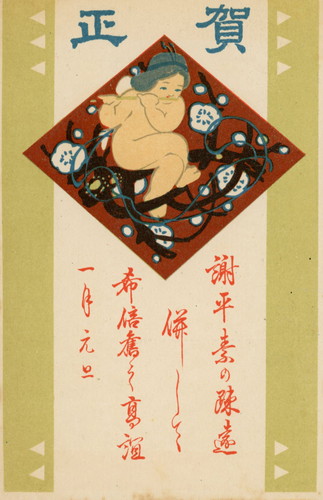 賀正
謝平素の疎遠
併して
希倍舊之高誼
一月元旦